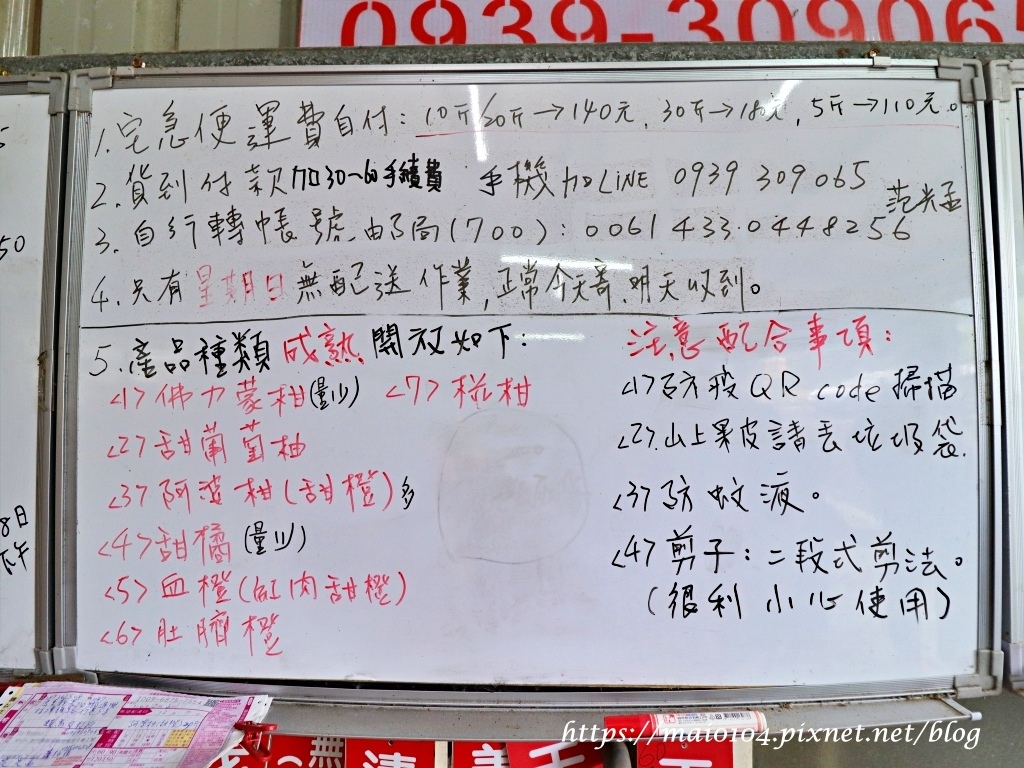 0939-309065
1.宅急便運費自付：10斤/20斤→140元，30斤→180元，5斤→110元。
2.貨到付款加30~60手續費 手機加LINE 0939 309065
3.自行轉帳號 郵局(700)：0061433.0448256 范光孟
4.只有星期日無配送作業，正常今天寄，明天收到。
5.產品種類成熟開放如下：
<1>佛力蒙柑(量少) <7>椪柑
<2>甜葡萄柚
<3>阿波柑(甜橙)多
<4>甜橘(量少)
<5>血橙(紅肉甜橙)
<6>肚臍橙
注意配合事項：
<1>防疫QR code掃描
<2>山上果皮請丟垃圾袋.
<3>防蚊液。
<4>剪子：二段式剪法。
(很利 小心使用)
50
8日
下午
https://mai0104.pixnet.net/blog